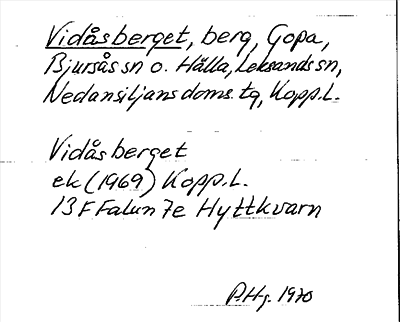 Vidåsberget, berg, Gopa,
Bjursås sn o. Hålla, Leksands sn,
Nedansiljans doms. tg, Kopp.L.
Vidåsberget
ek (1969) Kopp.L.
13 F Falun 7e Hyttkvarn
P.Hj. 1970